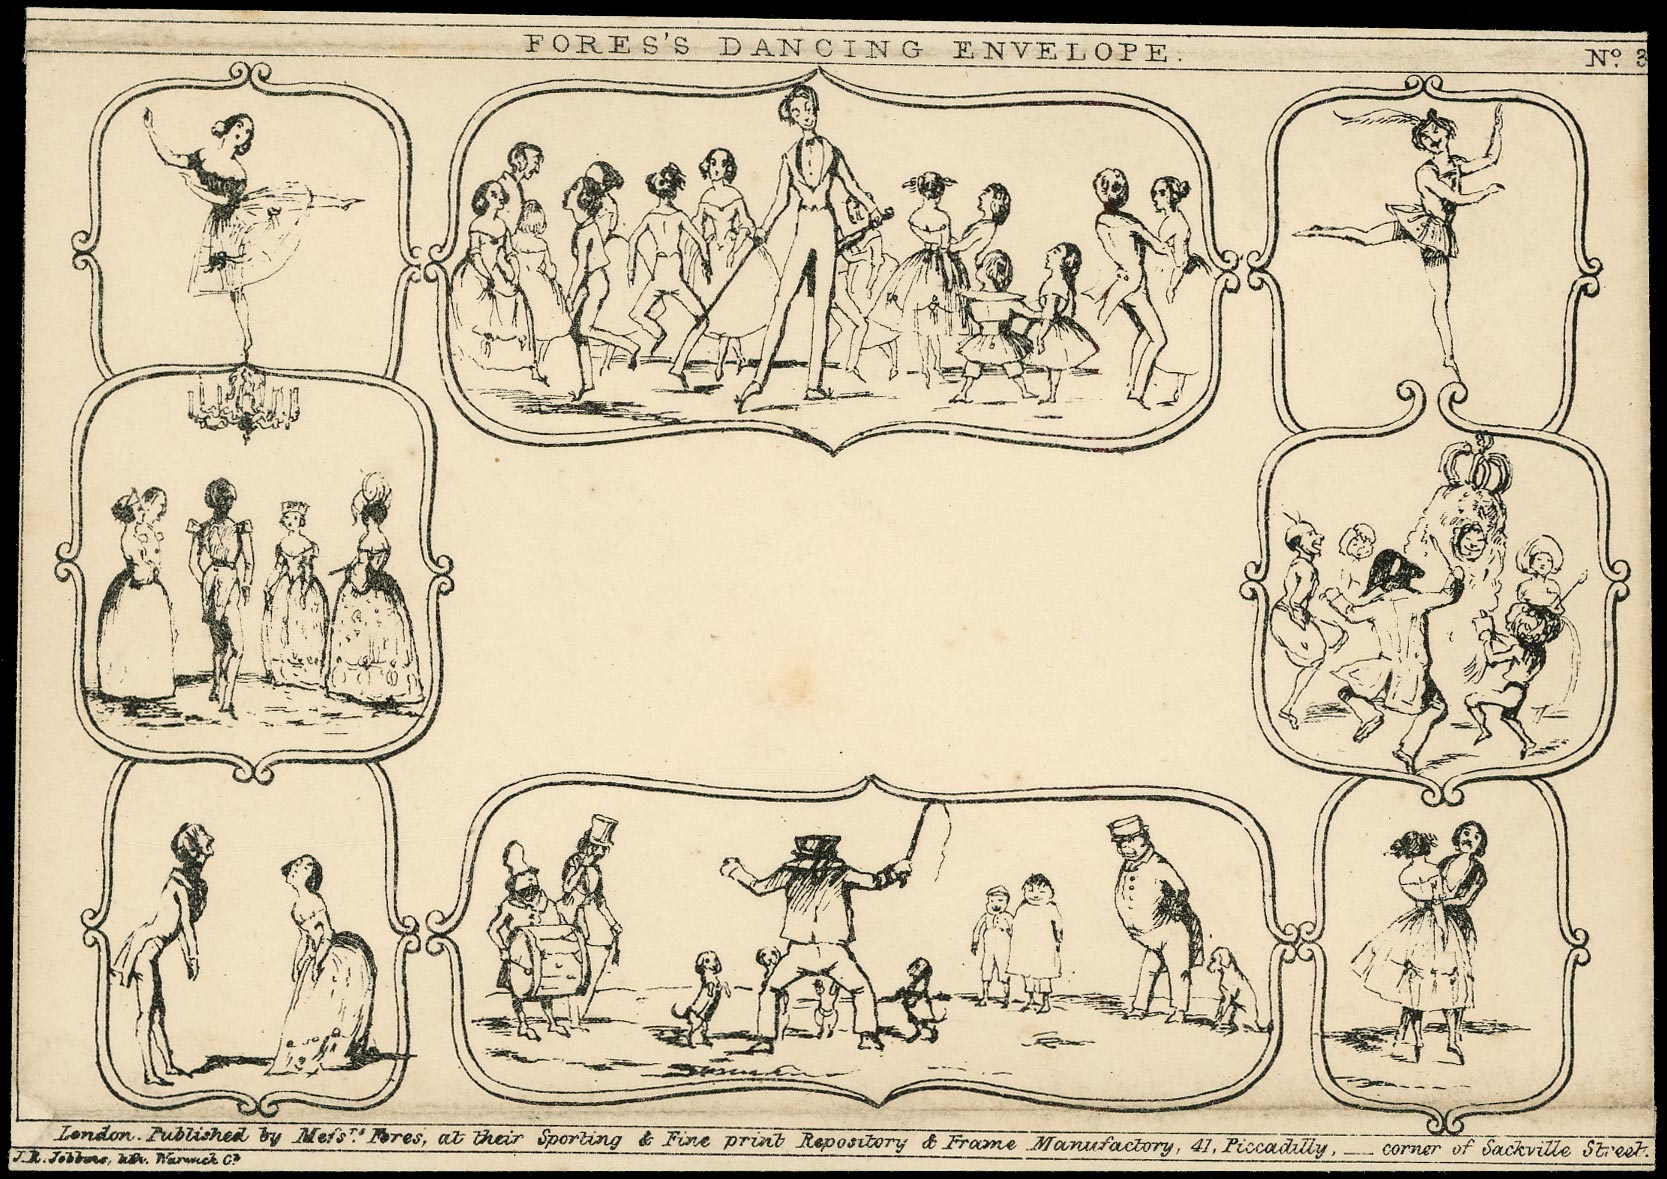 FORES'S DANCING ENVELOPE.
No. 3
London. Published by Mefsrs. Fores, at their Sporting & Fine print Repository & Frame Manufactory, 41, Piccadilly, — corner of Sackville Street.
J. R. Jobbins, lith. Warwick Ct.